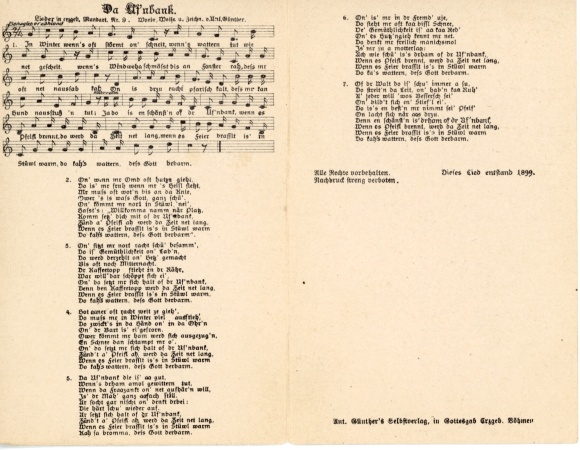 Da Uf'nbank.
Lieder in erzgeb. Mundart. Nr. 9. Worte, Weise u. Zeichn. v. Ant. Günther.
1. In Winter wenn's oft störmt on' schneit, wenn's wattern tut wie
net gescheit, wenn's Windwaha schmässt bis an Fanster nah, deß mr
oft net nausfah kah. On is drzu racht pfarisch kalt, deß mr kan
Hund nausjußt'n tut: Ja do is en schönst'n of dr Uf'nbank, wenn es
Pfeifl brennt, do werd da Zeit net lang, wenn es Feier brasslt is's in
Stüwl warm, do kah's wattern, deß Gott derbarm.
2. On' wnn mr Omd oft hutzn gieht,
Do is' mr fruh wenn mr 's Heisl sieht,
Mr muß oft wot'n bis an da Knie,
On' kömmt mr nort in Stüwl 'nei',
Komm setz' dich mit of dr Uf'nbank,
Zünd a' Pfeifl ah werd da Zeit net lang,
Wenn es Feier brasslt is's in Stüwl warm
Do kah's wattern, deß Gott derbarm".
3. On' sitzt mr nort racht schü' besamm',
Do is' Gemüthlichkeit on' Lab'n,
Do werd derzehlt on' Hetz' gemacht
Bis oft noch Mitternacht.
Dr Kaffetopp stieht in dr Röhr,
War will' dar schöppt sich ei',
On' da setzt mr sich halt of dr Uf'nbank,
Denn den Kaffetopp werd da Zeit net lang,
Wenn es Feier brasslt is's in Stüwl warm
Do kah's wattern, deß Gott derbarm.
4. Hot aaner oft racht weit ze gieh',
Do muß mr in Winter viel ausstieh',
Do zwickt's in da Händ on' in da Ohr'n
On' dr Bart is' ei'gefrorn.
Ower kömmt mr ham werd sich ausgezug'n,
En Schnee dan schtampt mr o',
On' do setzt mr sich halt of dr Uf'nbank,
Zünd't a' Pfeifl ah, werd da Zeit net lang,
Wenn es Feier brasslt is's in Stüwl warm
Do kah's wattern, deß Gott derbarm.
5. Da Uf'nbank die is' aa gut.
Wenn's drham amol gewittern tut,
Wenn da Fraazankt on' net aufhär'n will,
Is' dr Ma' ganz aafach still.
Ar horcht gar nischt on' denkt drbei:
Die hört schu' wieder auf.
Ar setzt sich halt of dr Uf'nbank,
Zünd't a' Pfeifl ah, werd da Zeit net lang,
Wenn es Feier brasslt is's in Stüwl warm
Kah sa brumma, deß Gott derbarm.
6. On' is' mr in dr Fremd' use,
Do sieht mr oft kaa bissl Schnee,
De' Gemüthlichkeit is' aa kaa Red'
Do denkt mr freilich manichsmol
Ach wie schü' is's drham of dr Uf'nbank,
Wenn es Pfeifl brennt, werd da Zeit net lang,
Wenn es Feier brasslt is's in Stüwl warm
Do kah's wattern, deß Gott derbarm.
7. Of dr Walt do is' schu' immer a so,
Do streit'n da Leit, on' hab'n kaa Ruh'
A' jeder will 'wos Besserisch sei'
On' bild't sich en' Stief'l ei'.
Do is's en best'n mr nimmt sei' Pfeif'
On lacht sich när aus drzu.
Denn en schönst'n is' drham of dr Uf'nbank,
Wenn es Pfeifl brennt, werd da Zeit net lang,
Wenn es Feier brasslt is's in Stüwl warm
Do kah's wattern, deß Gott derbarm.
Alle Rechte vorbehalten.
Nachdruck streng verboten.
Dieses Lied entstand 1899.
Ant. Günther's Selbstverlag, in Gottesgab Erzgeb. Böhmen